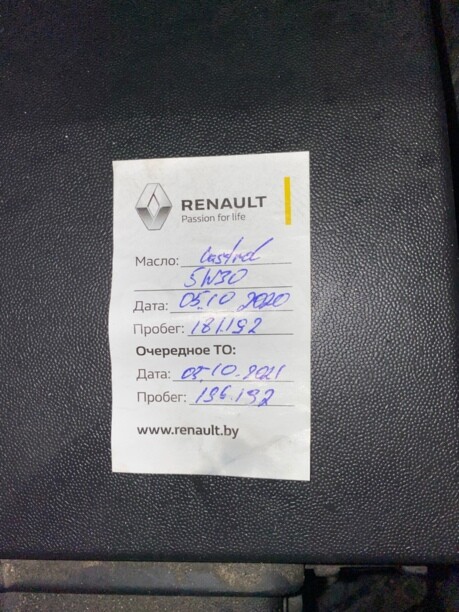 RENAULT
Passion for life
Масло: Castrol
5W30
Дата: 05.10 2020
Пробег: 181.192
Очередное ТО:
Дата: 05.10.2021
Пробег: 196.192
www.renault.by